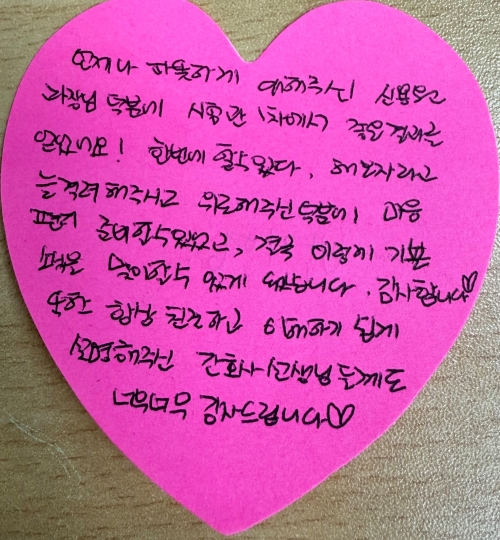 언제나 따뜻하게 대해주신 신용우
과장님 덕분에 시험관 1차에서 좋은결과를
얻었네요! 한번에 할수있다, 해보자라고
늘격려해주시고 위로해주신덕분에 마음
편히 준비할수있었고, 결국 이렇게 기쁜
소식을 들어할수 있게 됐습니다. 감사합니다♡
또한 항상 친절하고 이해하기 쉽게
설명해주신 간호사선생님들께도
너무너무 감사드립니다♡